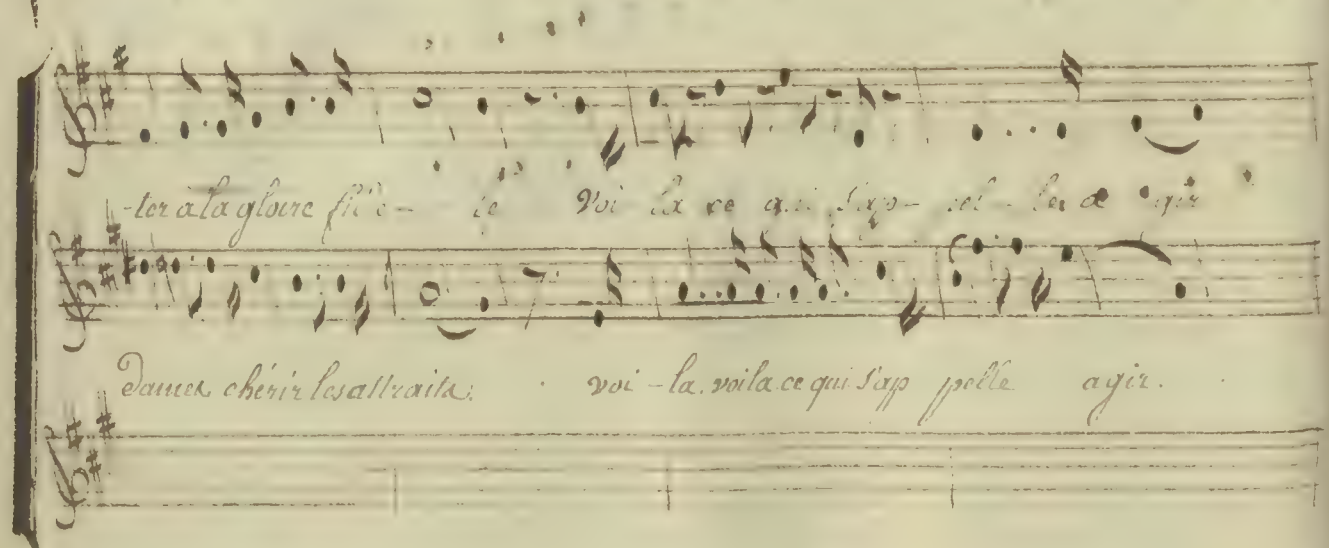 -ter à la gloire fidè- le voi- la ce qui s'ap- pel- le a gir
Dames chérir les attraits. voi-la. voila ce qui s'ap pelle agir.